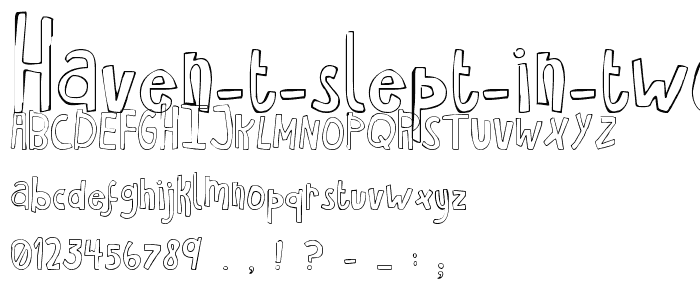 Haven-t-slept-in-tw
ABCDEFGHIJKLMNOPQRSTUVWXYZ
abcdefghijklmnopqrstuvwxyz
0123456789 . , ! ? - _ : ;